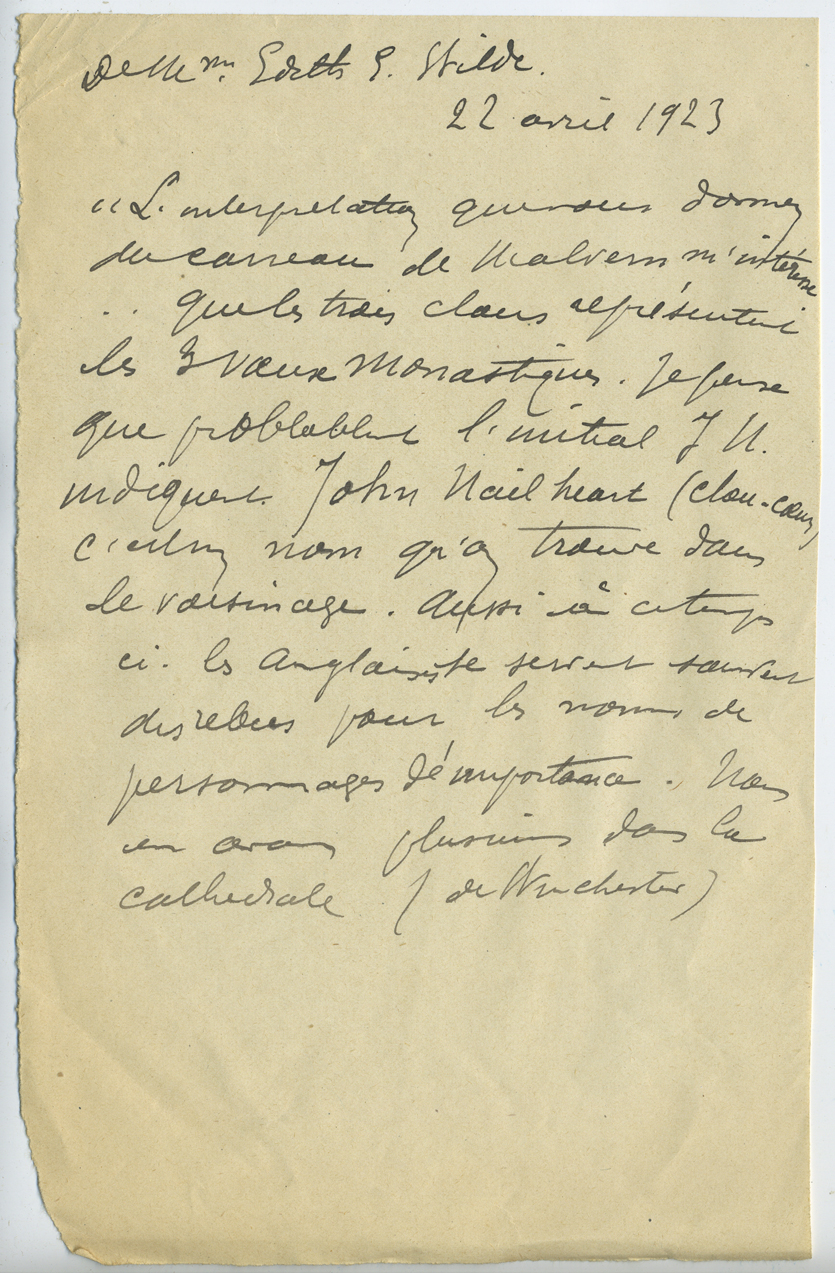 De Mme. Edith E. Wilde.
22 avril 1923
"L'interpretation que vous donnez
du carreau de Malvern m'intéresse
.. que les trois clous représentent
les 3 vœux monastiques. Je pense
que problablent l'initial J N.
indiquent John Nailheart (clou-cœur)
c'est un nom qu'on trouve dans
le voisinage. Aussi à ce temps
ci. les Anglais se servent souvent
des rebus pour les noms de
personnages d'importance. Nous
en avons plusieurs dans la
cathedrale (de Winchester)